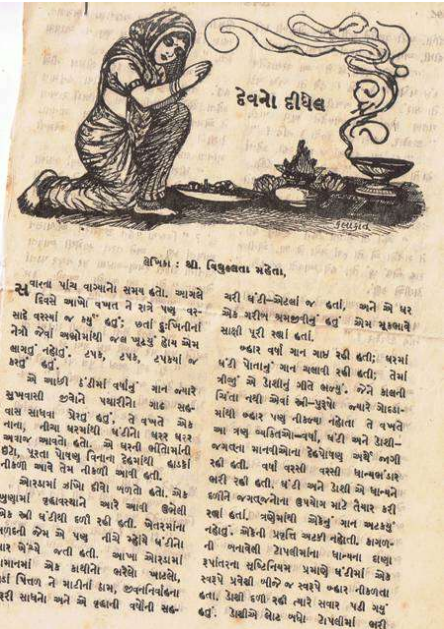 દેવનો દીધેલ
કલાકાત
લેખિકા : શ્રી. વિદ્યુલ્લતા મહેતા,
સવારના પાંચ વાગ્યાનો સમય હતો. આગલે
દિવસે આખો વખત ને રાત્રે પણ વર-
સાદે વરસ્યા જ કર્યું હતું; છતાં દુઃખિતીનાં
નેત્રો જેવાં અભ્રોમાંથી જલ ખૂટયું હોય એમ
લાગતું નહોતું. ટપક, ટપક, ટપકયા જ
કરતું હતું.
એ આછી ઠંડીમાં વર્ષાનું ગાન જ્યારે
સુખવાસી જીવોને પથારીનો ગાઢ સહ-
વાસ સાધવા પ્રેરતું હતું, તે વખતે એક
નાના, નીચા ઘરમાંથી ઘંટીનો ઘરર ઘરર
અવાજ આવતો હતો. એ ઘરની ભીંતોમાંની
ઈંટો, પૂરતા પોષણ વિનાના દેહમાંથી હાડકાં
નીકળી આવે તેમ નીકળી આવી હતી.
ઓરડામાં ઝાંખો દીવો બળતો હતો. એક
ખૂણામાં વૃદ્ધાવસ્થાને આરે આવી ઉભેલી
એક સ્ત્રી ઘંટીથી દળી રહી હતી. ખેતરમાંના
બળદની જેમ એ પણ નીચે મ્હોંયે ઘંટીનો
ભાર ખેંચ્યે જતી હતી. આખા ઓરડામાં
સામાનમાં એક કાથીનો ભરેલો ખાટલો,
થોડાં પિતળ ને માટીનાં ઠામ, જીવનનિર્વાહના
સાધનો અને એ વૃદ્ધાની વર્ષોની સહ-
ચરી ઘંટી-એટલાં જ હતાં, અને એ ઘર
એક ગરીબ શ્રમજીવીનું હતું એમ મૂકભાવે
સાક્ષી પૂરી રહ્યાં હતાં.
બ્હાર વર્ષા ગાન ગાઈ રહી હતી; ઘરમાં
ઘંટી પોતાનું ગાન ચલાવી રહી હતી; તેમાં
ત્રીજું એ ડોશીનું ગીતે ભળ્યું. જેને કાલની
ચિંતા નથી એવાં સ્ત્રી-પુરુષો જ્યારે ઓરડા-
માંથી બ્હાર પણ નીકળ્યા નહોતા તે વખતે
આ ત્રણ વ્યક્તિઓ-વર્ષા, ઘંટી અને ડોશી-
જગતના માનવીઓના દેહપોષણ અર્થે જાગી
રહી હતી. વર્ષા વરસી વરસી ધાન્યભંડાર
ભરી રહી હતી. ઘંટી અને ડોશી એ ધાન્યને
દળીને જગતજનોના ઉપયોગ માટે તૈયાર કરી
રહ્યાં હતાં. ત્રણેમાંથી એકનું ગાન અટકયું
નહોતું. એકની પ્રવૃત્તિ અટકી નહોતી. કાગળ-
ની બનાવેલી ટોપલીમાંના ધાન્યના દાણા
રૂપાંતરના સૃષ્ટિનિયમ પ્રમાણે ઘંટીમાં એક
સ્વરૂપે પ્રવેશી બીજે જ સ્વરૂપે બ્હાર નીકળતા
હતા. ડોશી દળી રહી ત્યારે સવાર પડી ગયું
હતું. ડોશીએ લોટ બધો ટોપલીમાં ભરી